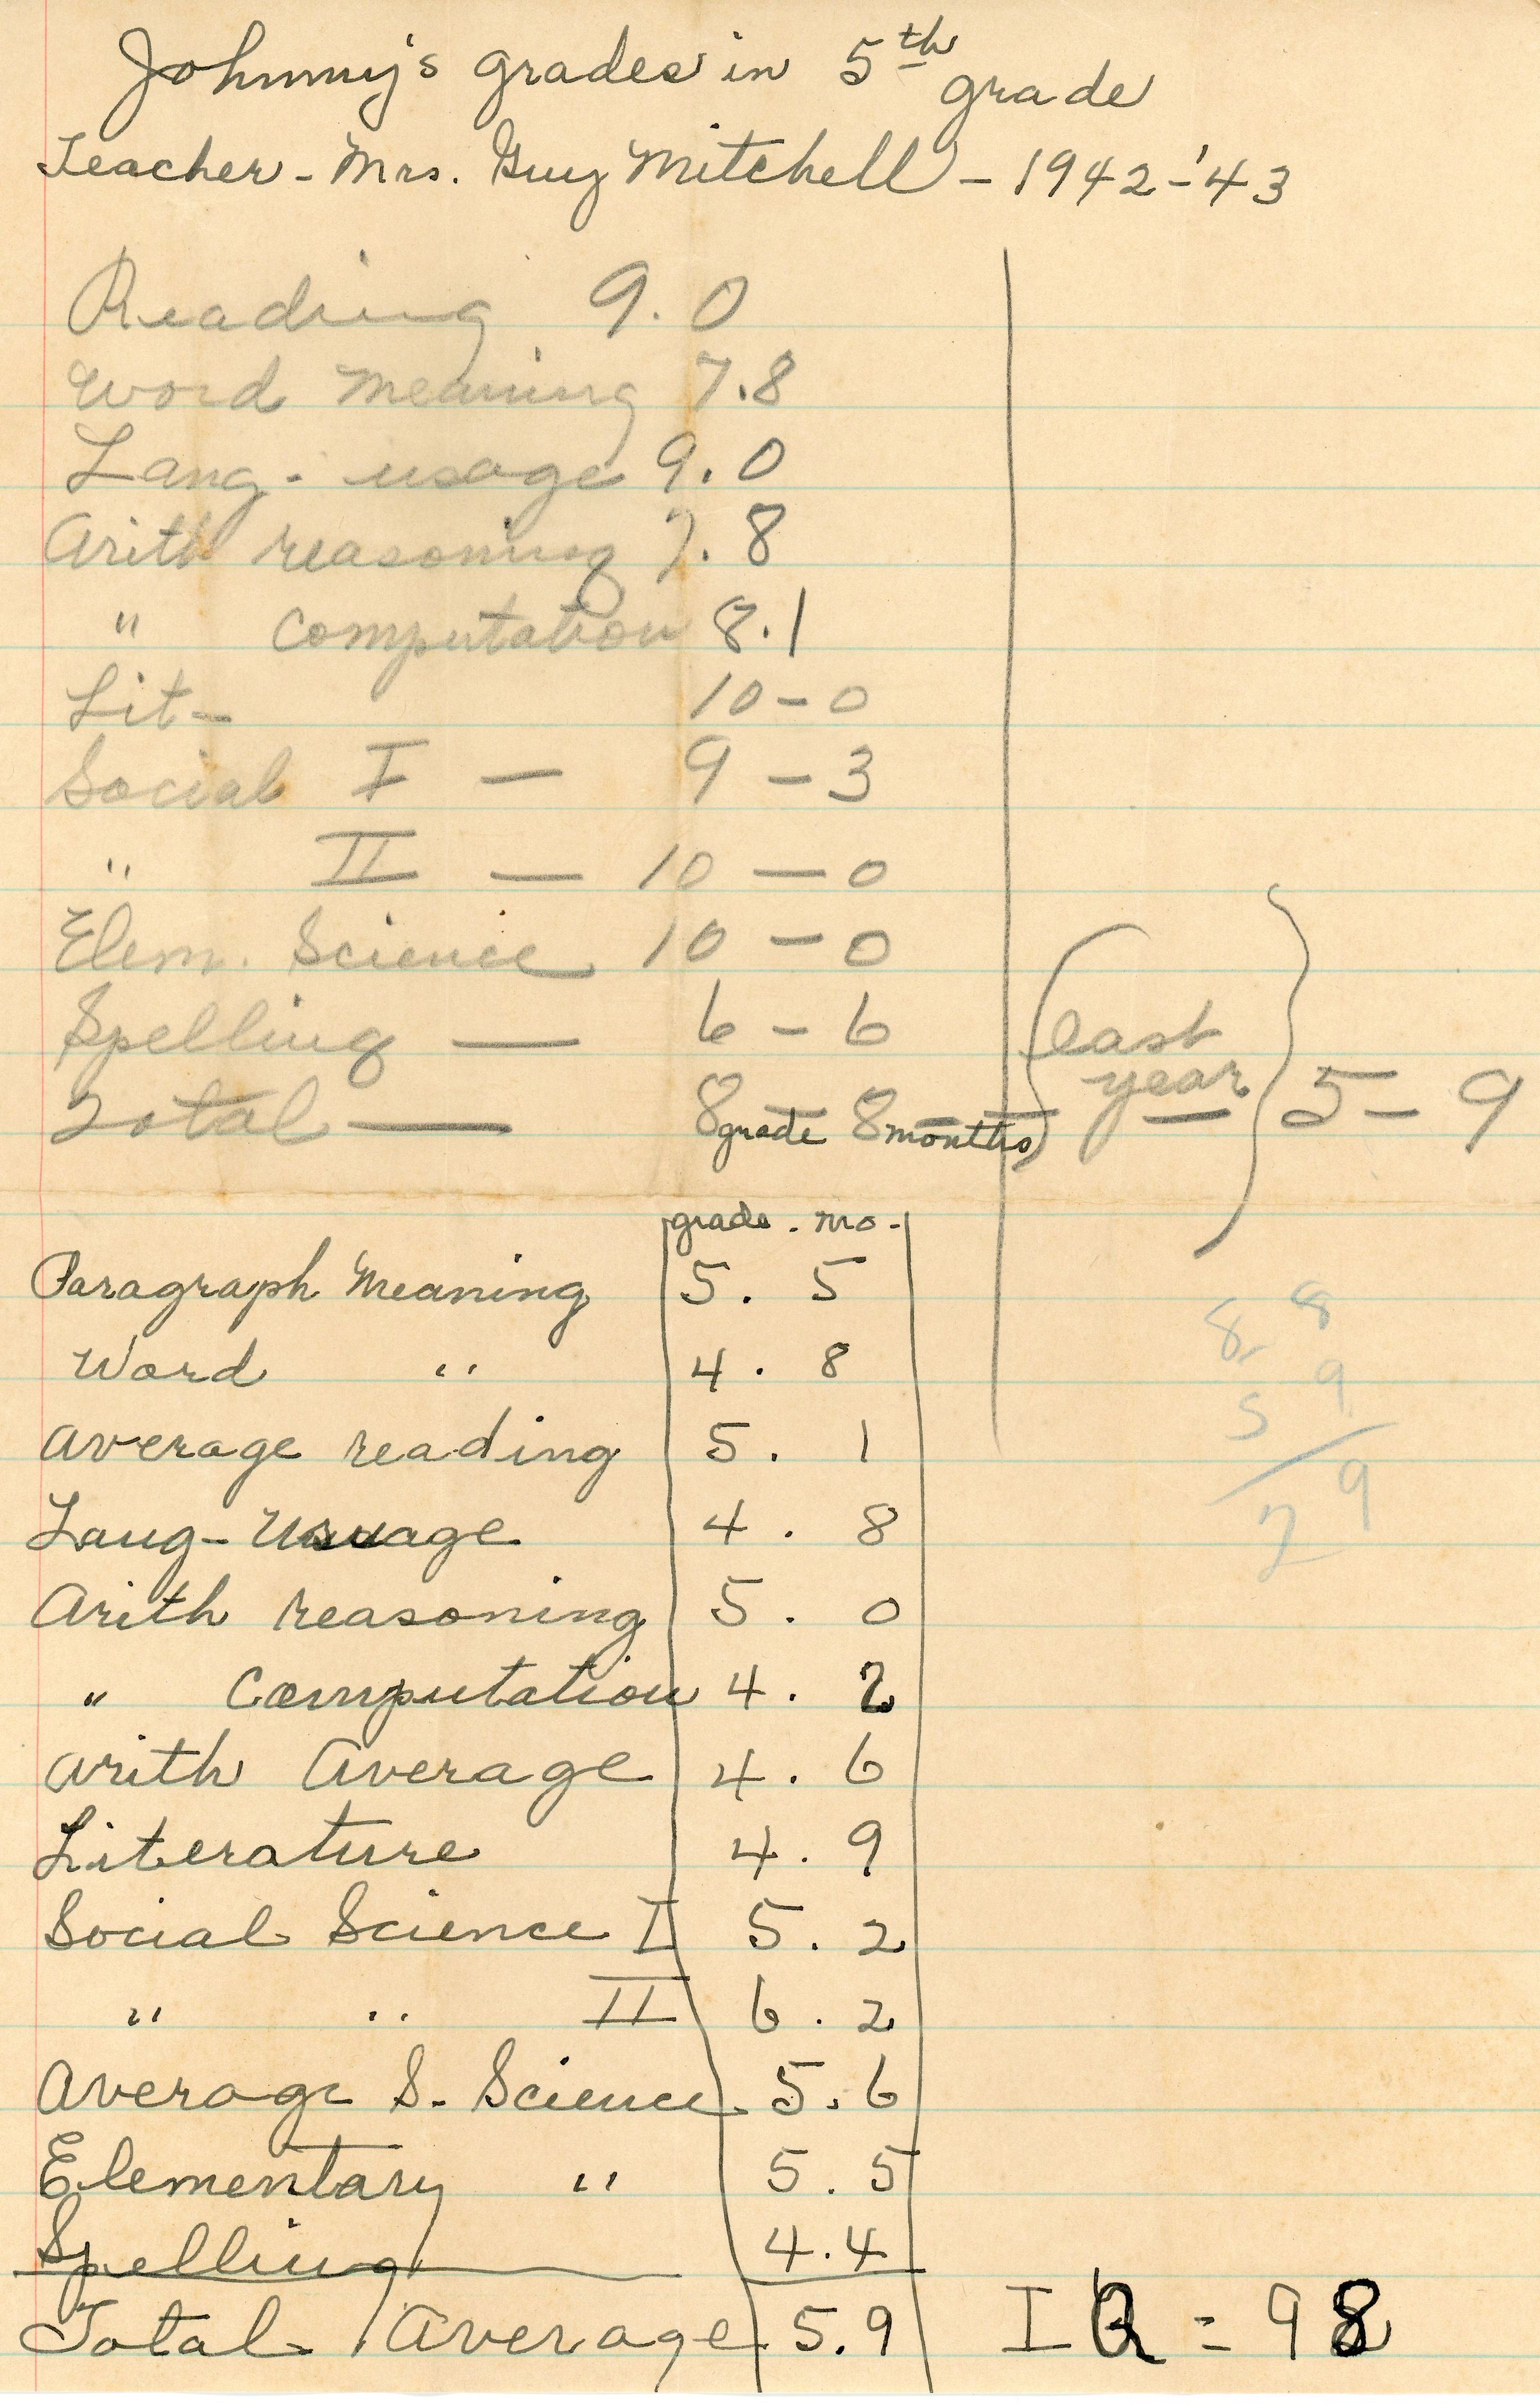 Johnny's grades in 5th grade
Teacher - Mrs. Guy Mitchell - 1942-'43
Reading 9.0
Word meaning 7.8
Lang. usage 9.0
Arith reasoning 7.8
" Computation 8.1
Lit- 10-0
Social I — 9-3
" II — 10-0
Elem. Science 10-0
Spelling — 6-6
Total — 8 grade 8 months (last year) 5-9
grade. mo.
Paragraph Meaning 5. 5
Word " 4. 8
Average reading 5. 1
Lang- Usuage 4. 8
Arith reasoning 5. 0
" Computation 4. 2
Arith Average 4. 6
Literature 4. 9
Social Science I 5. 2
" " II 6. 2
Average S. Science 5.6
Elementary " 5. 5
Spelling 4.4
Total Average 5.9
IQ = 98
8. 8
5 9
2 9